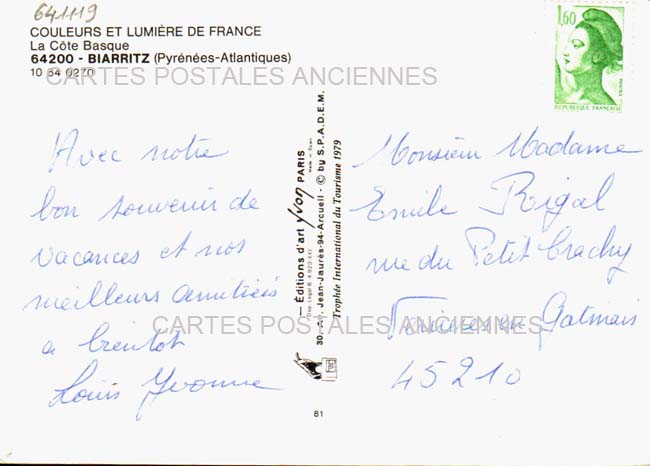 641119
COULEURS ET LUMIÈRE DE FRANCE
La Côte Basque
64200 - BIARRITZ (Pyrénées-Atlantiques)
10 64 0270
CARTES POSTALES ANCIENNES
Avec notre
bon souvenir de
vacances et nos
meilleurs amitiés
a bientot
Louis Yvonne
— Éditions d'art yvon PARIS
30 - Av. Jean-Jaurès-94-Arcueil - © by S.P.A.D.E.M.
Trophée International du Tourisme 1979
81
1,60
REPUBLIQUE FRANÇAISE
Monsieur Madame
Emile Rigal
rue du Petit Crachy
en Gatinais
45210
CARTES POSTALES ANCIENNES